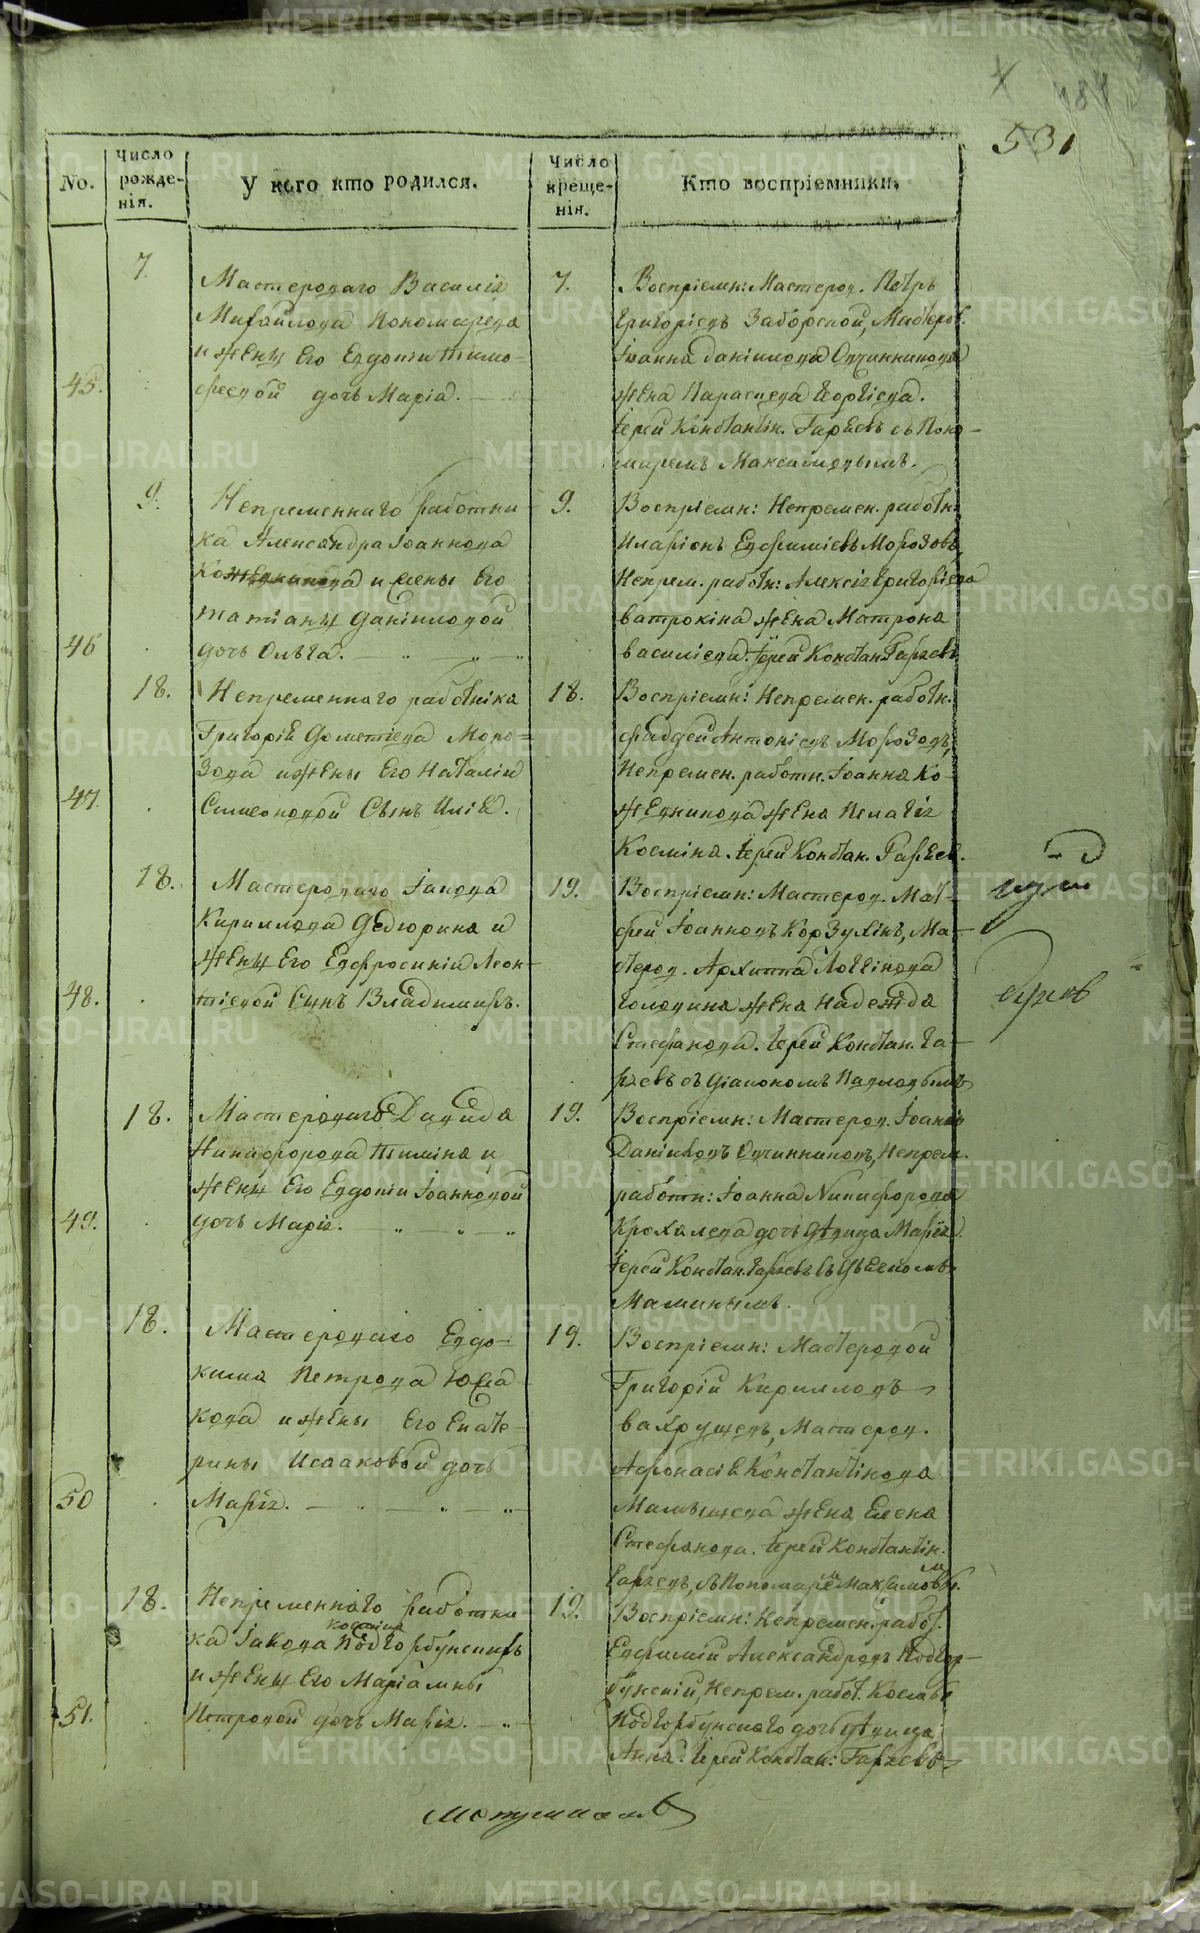 531
No.
Число рожде-нія.
У кого кто родился.
Число креще-нія.
Кто воспріемники.
7.
Мастероваго Василія
Михайлова Пономарева
и жены Его Евдокіи Тимо-
45.
феевой дочь Марія.
7.
Воспріемн: Мастеров. Петръ
Григоріевъ Заборской, Мастеров.
Іоанна Даніилова Овчинникова
жена Параскева Георгіева.
Іерей Константін. Гаряевъ съ Поно-
маремъ Максимовымъ.
9.
Непременнаго работни-
ка Александра Іоаннова
Кожевникова и жены Его
татіаны Даніиловой
46
дочь Ольга.
9.
Воспріемн: Непремен. работн:
Иларіонъ Евфиміевъ Морозовъ,
Непрем. работн: Алексія Григоріева
Ватрокіна жена Матрона
Василіева. Іерей Констан. Гаряевъ
18.
Непременнаго работніка
Григорія Дометіева Моро-
зова и жены Его Наталіи
47.
Симеоновой Сынъ Илія.
18.
Воспріемн: Непремен. работн.
Фаддей Антоніевъ Морозовъ,
Непремен. работн. Іоанна Ко-
жевникова жена Пелагія
Косміна. Іерей Констан. Гаряев.
18.
Мастероваго Іакова
Кириллова Дедюрина и
жены Его Евфросиніи Леон-
48.
тіевой Сынъ Владимиръ.
19.
Воспріемн: Мастеров. Мат-
фей Іоанновъ Корзухінъ, Ма-
стеров. Архиппа Логгінова
Голодина жена Надежда
Стефанова. Іерей Констан. Га-
ряевъ съ Діакономъ Павловымъ
18.
Мастероваго Давида
Никифорова Тимина и
жены Его Евдокіи Іоанновой
49.
дочь Марія.
19.
Воспріемн: Мастеров. Іоаннъ
Даніиловъ Овчинниковъ, Непрем.
работн: Іоанна Никифорова
Крохалева дочь девица Марія.
Іерей Констан. Гаряевъ съ
Маминымъ.
18.
Мастероваго Евдо-
кима Петрова Юша
кова и жены Его Екате-
рины Исааковой дочь
50
Марія.
19.
Воспріемн: Мастеровой
Григорій Кирилловъ
Вахрушевъ, Мастеров.
Афонасія Константінова
Мамышева жена Елена
Стефанова. Іерей Константін.
Гаряевъ, съ Пономаремъ Максимовым.
18.
Непременнаго работни-
косміна
ка Іакова Подгорбунскихъ
и жены Его Маріамны
51.
Петровой дочь Марія.
19.
Воспріемн: Непремен. работ.
Евфимій Александровъ Подгор-
бунскій, Непрем. работ. Космы
Подгорбунскаго дочь девица
Анна. Іерей Констан: Гаряевъ
METRIKI.GASO-URAL.RU